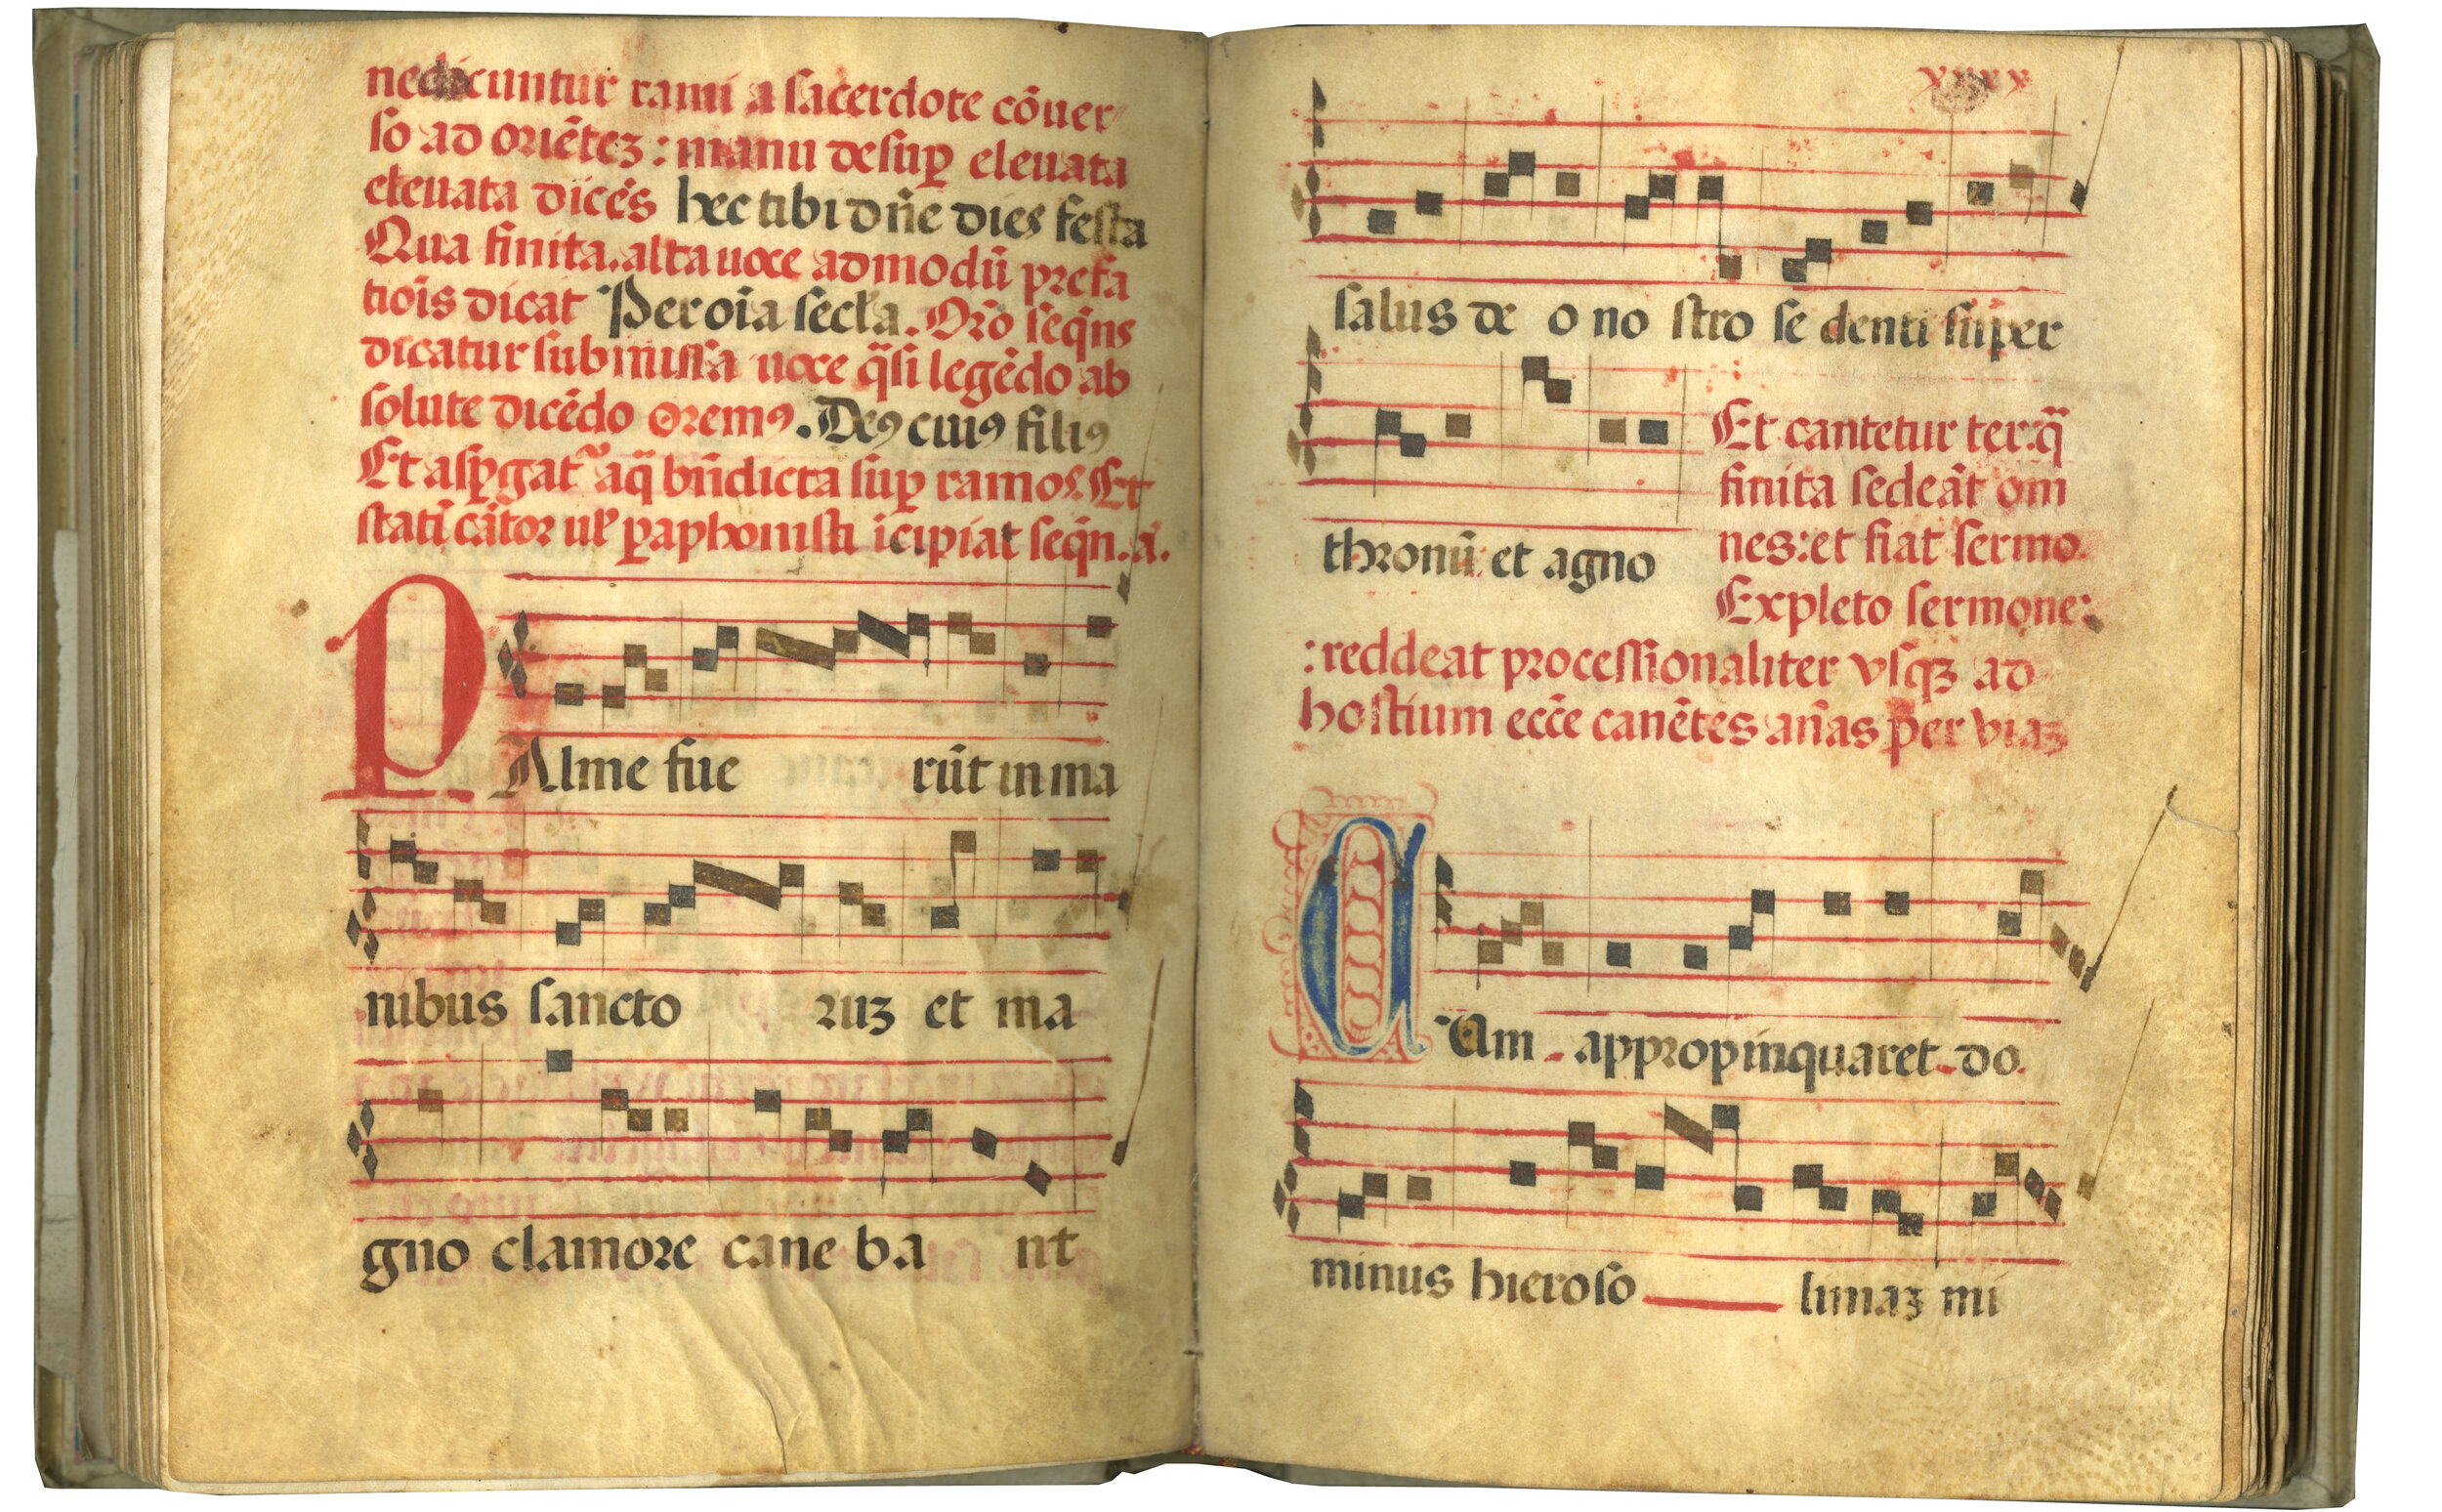 nedicuntur rami a sacerdote cōuer
so ad oriētez : manu desup eleuata
eleuata dicēs hec tibi dn̄e dies festa
Qua finita. alta uoce ad modū prefa
tiōis dicat Per oīa secl̄a. Or̄o seqn̄s
dicatur submissa uoce q̄si legēdo ab
solute dicēdo oremꝰ. Deꝰ cuiꝰ filiꝰ
Et aspgat aq̄ bn̄dicta sup ramos. Et
statī cātor ul̄ paphonisti īcipiāt seq̄n. a.
PAlme fue rūt in ma
nibus sancto ruz et ma
gno clamore cane ba nt
xxxx
salus de o no stro se denti super
thronū et agno
Et cantetur ter: q̄
finita sedeāt om
nes: et fiat sermo.
Expleto sermone:
: reddeat processionaliter vsqz ad
hostium ecc̄e canētes an̄as per viaz
CUm appropinquaret do.
minus hieroso limaz mi